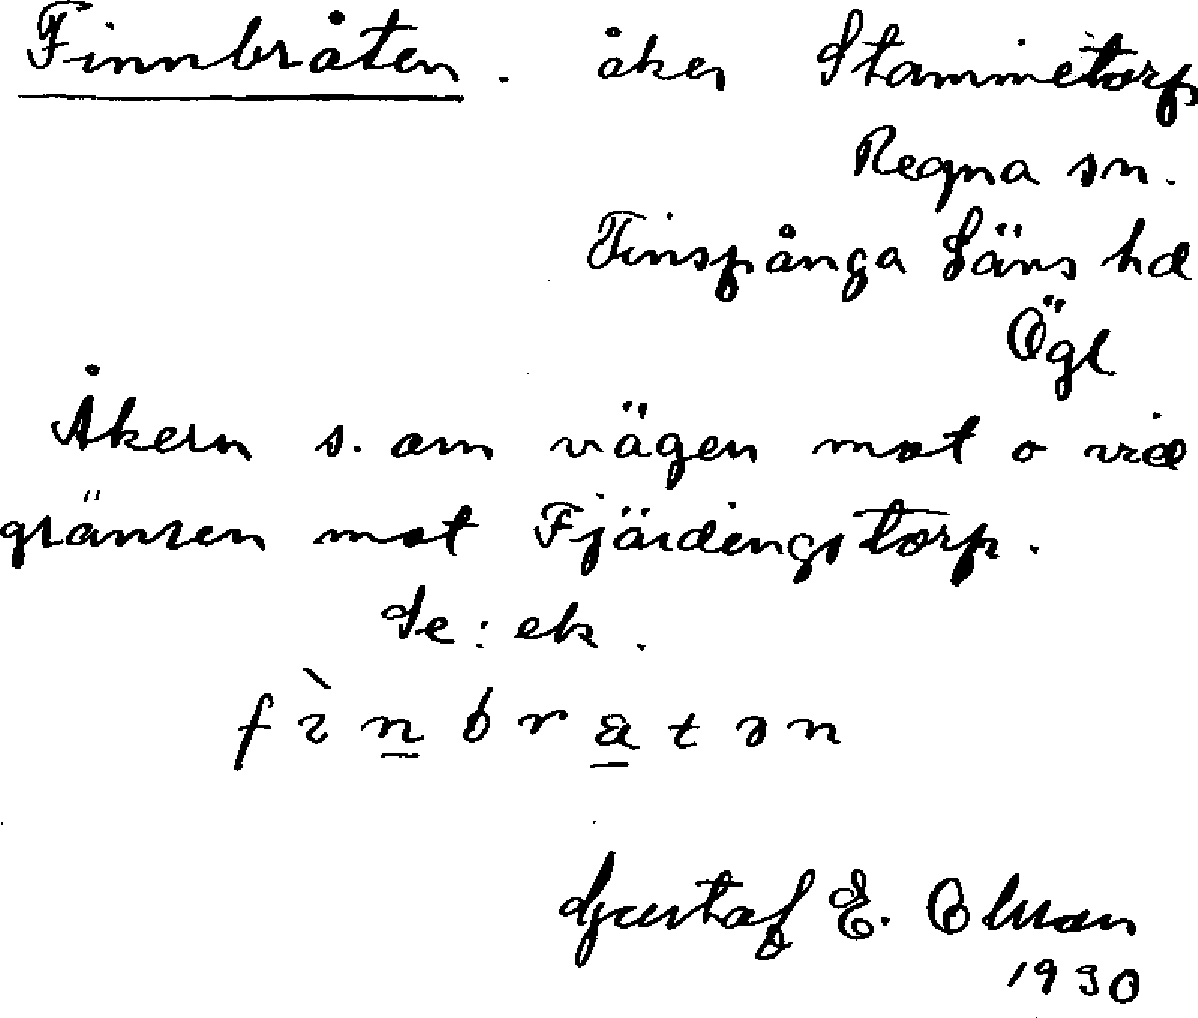 Finnbråten. åker Stammetorp
Regna sn.
Finspånga Läns hd
Ögl
Åkern s. om vägen mot o vid
gränsen mot Fjärdingstorp.
Se: ek.
fìnbratən
Gustaf E. Olson
1930